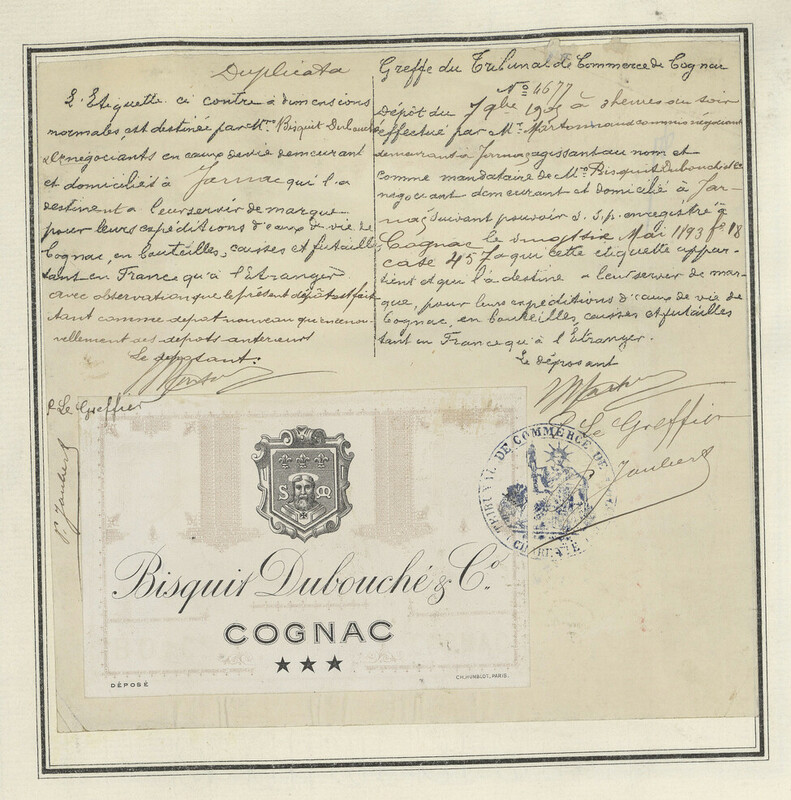 Duplicata
L'Etiquette ci contre à dimensions
normales, est destinée par Mrs Bisquit Dubouché
& Cie négociants en eaux de vie demeurant
et domiciliés à Jarnac qui l'a
destinent a leur servir de marque
pour leurs expéditions d'eaux de vie de
Cognac, en bouteilles, caisses et futailles
tant en France qu'à l'Etranger
avec observation que le présent dépôt est fait
tant comme depot nouveau qu'en renou
vellement des depots anterieurs
Le déposant.
P. Le Greffier
Greffe du Tribunal de Commerce de Cognac
No 4677
Dépôt du 7 9bre à 2 heures du soir
effectué par Mr négociant
demeurant à Jarnac agissant au nom et
comme mandataire de Mrs Bisquit Dubouché & Cie
negociant demeurant et domicilié à Jar-
nac suivant pouvoir s. s. p. enregistré à
Cognac le Mai 1893 fo 18
case 457 a qui cette étiquette appar-
tient et qui l'a destine a leur server de mar-
que, pour leurs expéditions d'eaux de vie de
Cognac, en bouteilles, caisses et futailles
tant en France qu'à l'Étranger.
Le déposant
P. Le Greffier
Jaubert
P. Jaubert
TRIBUNAL DE COMMERCE DE
CHARENTE
S M
Bisquit Dubouché & Co.
COGNAC
★★★
DÉPOSÉ
CH. HUMBLOT, PARIS.